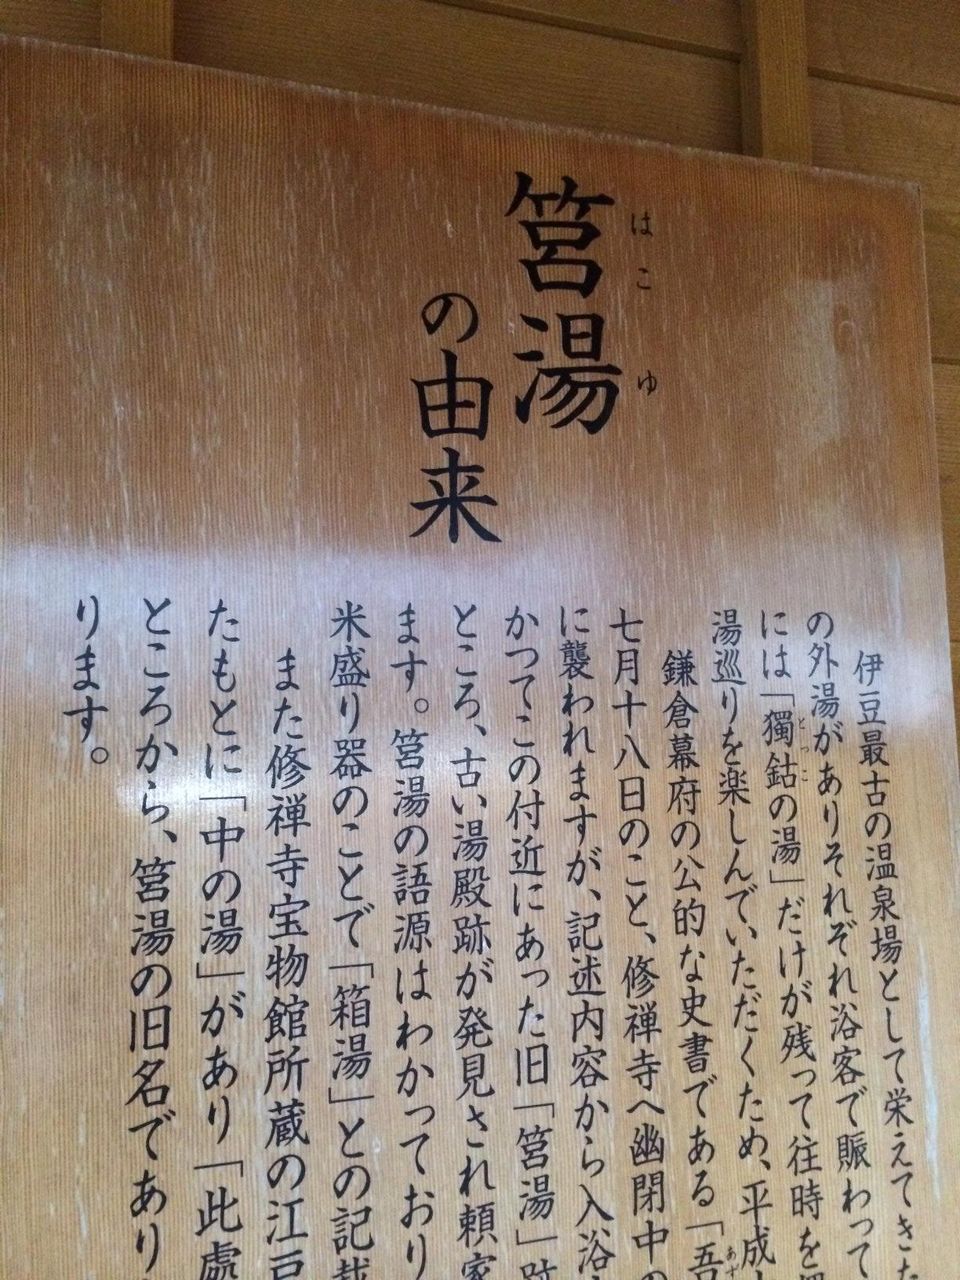 筥湯
はこゆ
の由来
伊豆最古の温泉場として栄えてきた
の外湯がありそれぞれ浴客で賑わって
には「獨鈷の湯」だけが残って往時を
とっこ
湯巡りを楽しんでいただくため、平成
鎌倉幕府の公的な史書である「吾
あず
七月十八日のこと、修禅寺へ幽閉中の
に襲われますが、記述内容から入浴
かつてこの付近にあった旧「筥湯」跡
ところ、古い湯殿跡が発見され頼家
ます。筥湯の語源はわかっており
米盛り器のことで「箱湯」との記載
また修禅寺宝物館所蔵の江戸
たもとに「中の湯」があり「此處
ところから、筥湯の旧名であり
ります。